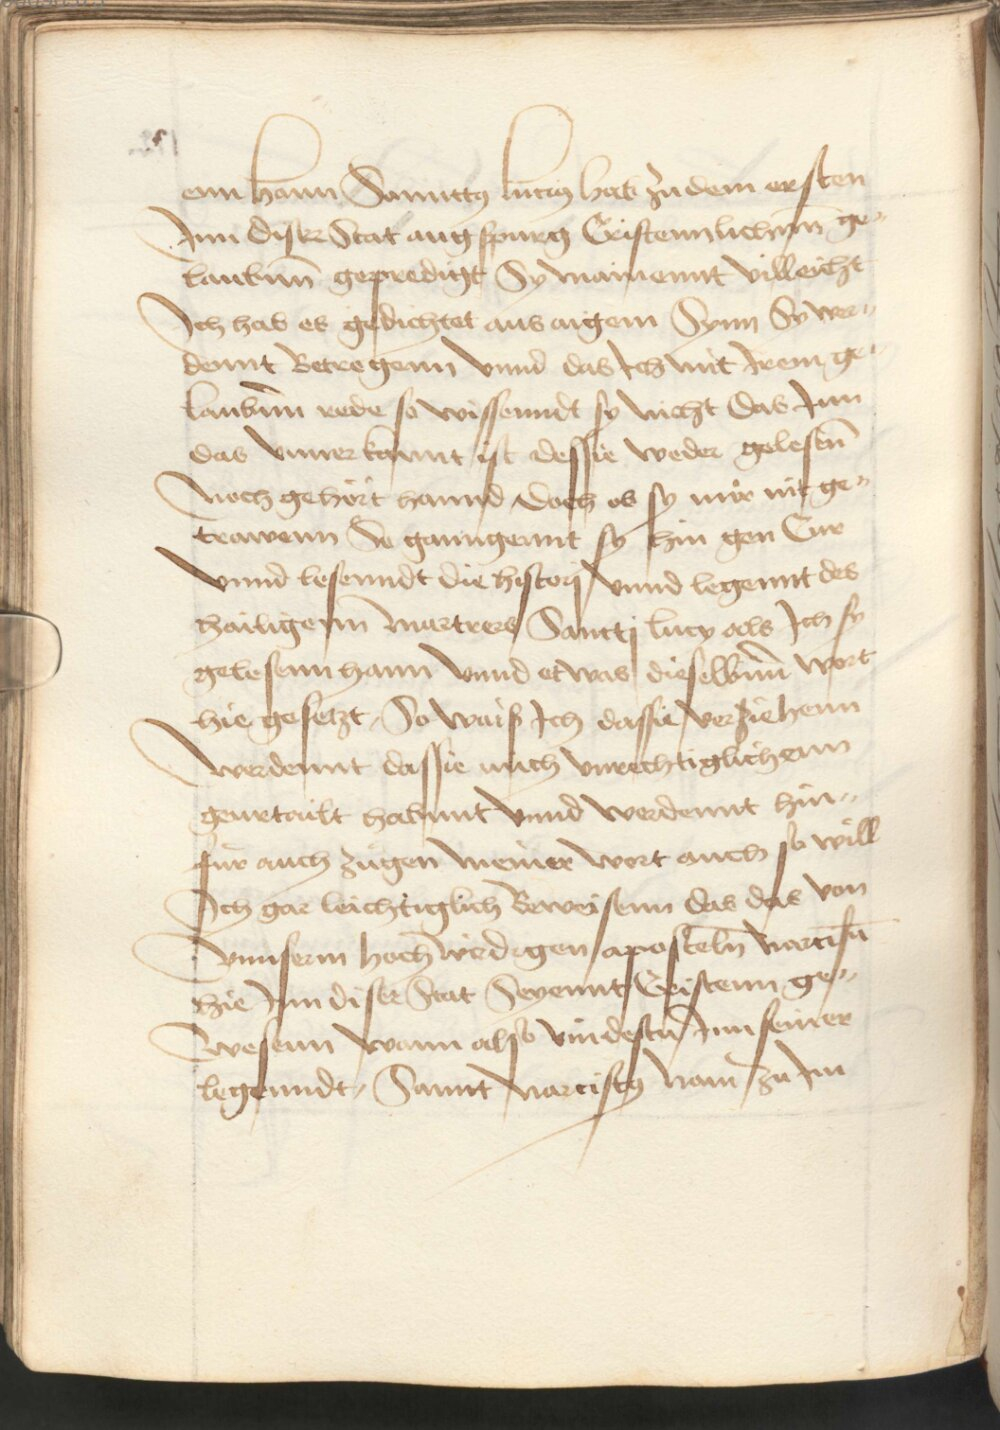 enn hann Sannttus lucius hab zu dem ersten
Jnn diser Stat augspurg Cristennlichenn ge¬
laubenn gepredigt Sy mainennt villeicht
Jch hab es gedichtet aus aigem Synn Sy wer¬
dennt Betregenn vnnd das Jch mit Jrem ge¬
laubenn rede so wissenndt sy nicht das Jnn
das vnnerkannt ist dessie weder gelesenn
Noch gehört hannd doch ob sy mir nit ge¬
trawenn So ganngennt sy hin gen Cur
vnnd lesenndt die histori vnnd legennt des
hailigenn martrers Sancti lucy als Jch sy
gelesenn hann vnnd etwas dieselbenn wort
hie gesetzt So waiß Jch dassie verziehenn
werdennt dassie mich vnrechtiglichenn
geurtailt habennt vnnd werdennt hin¬
für auch zugen meiner wort auch so will
Jch gar leichtiglich Beweisenn das das von
vnnserm hochwirdigen aposteln narcisu
hie Jnn diser Stat Seyennt Cristenn ge¬
wesenn wann also vindestu Jnn seiner
legenndt Sannt narciscus nam zu Jm